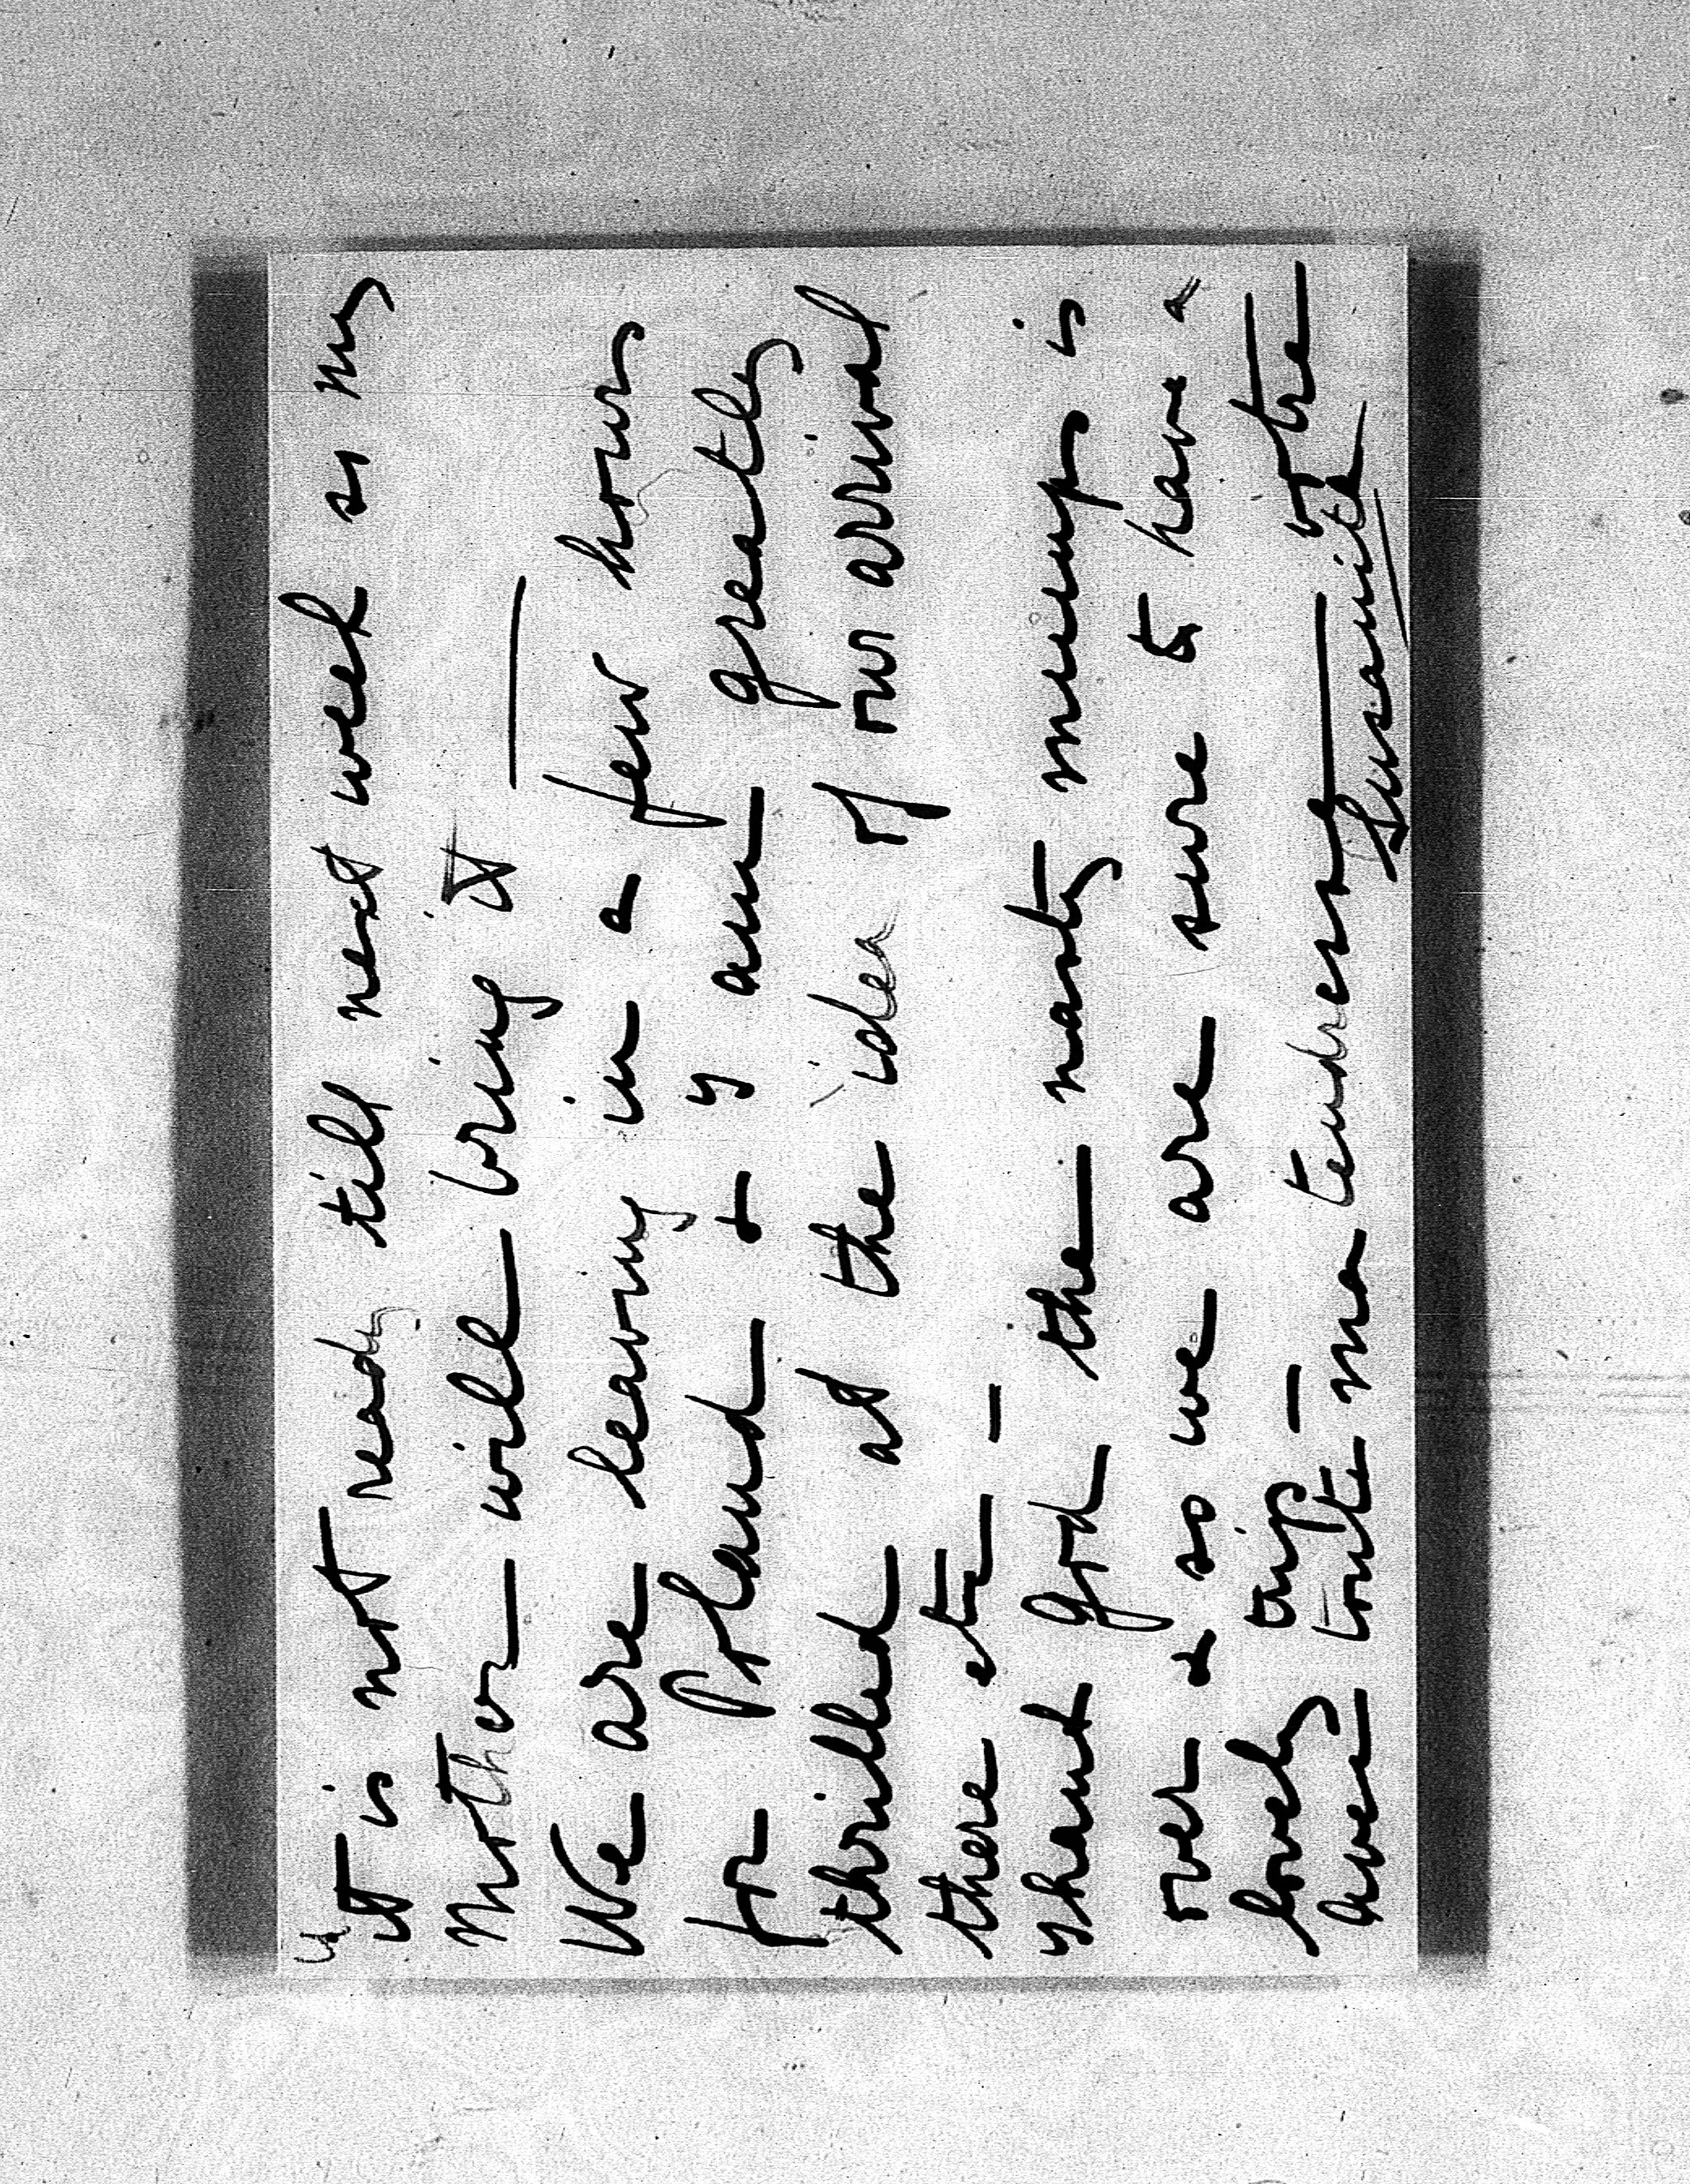 it is not ready till next week so my
Mother will bring it —
We are leaving in a few hours
for Poland & y am greatly
thrilled at the idea of our arrival
there etc —
yhank God the nasty mumps is
over & so we are sure to have a
lovely trip —
avec toute ma tendresse votre
Susanite